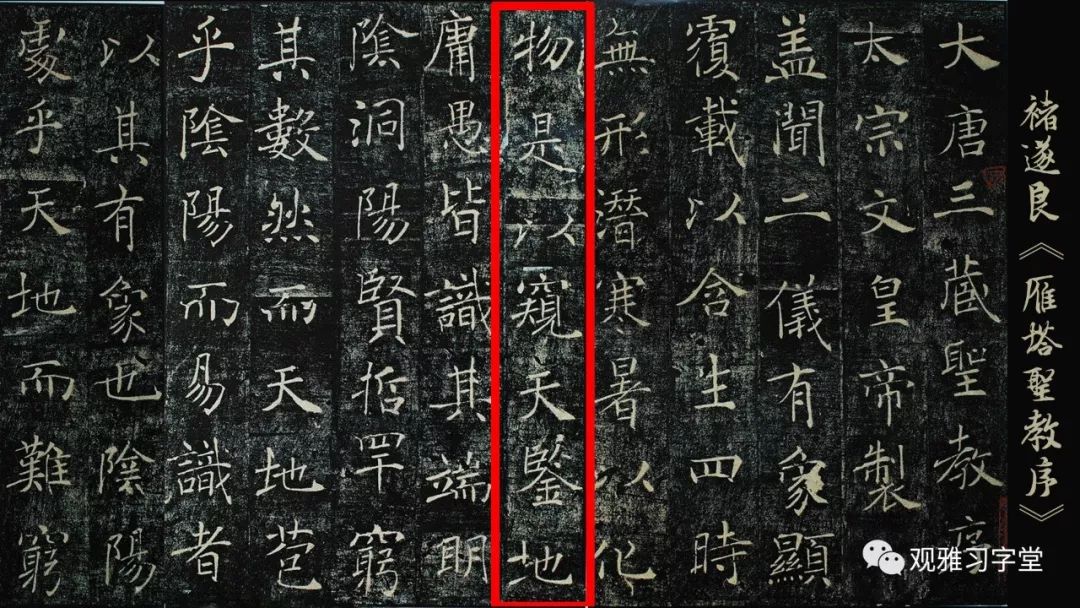 褚遂良《雁塔聖教序》
大唐三藏聖教序
太宗文皇帝製
盖聞二儀有象顯
覆載以含生四時
無形潛寒暑以化
物是以窺天鑒地
庸愚皆識其端明
陰洞陽賢哲罕窮
其數然而天地苞
乎陰陽而易識者
以其有象也陰陽
處乎天地而難窮
观雅习字堂